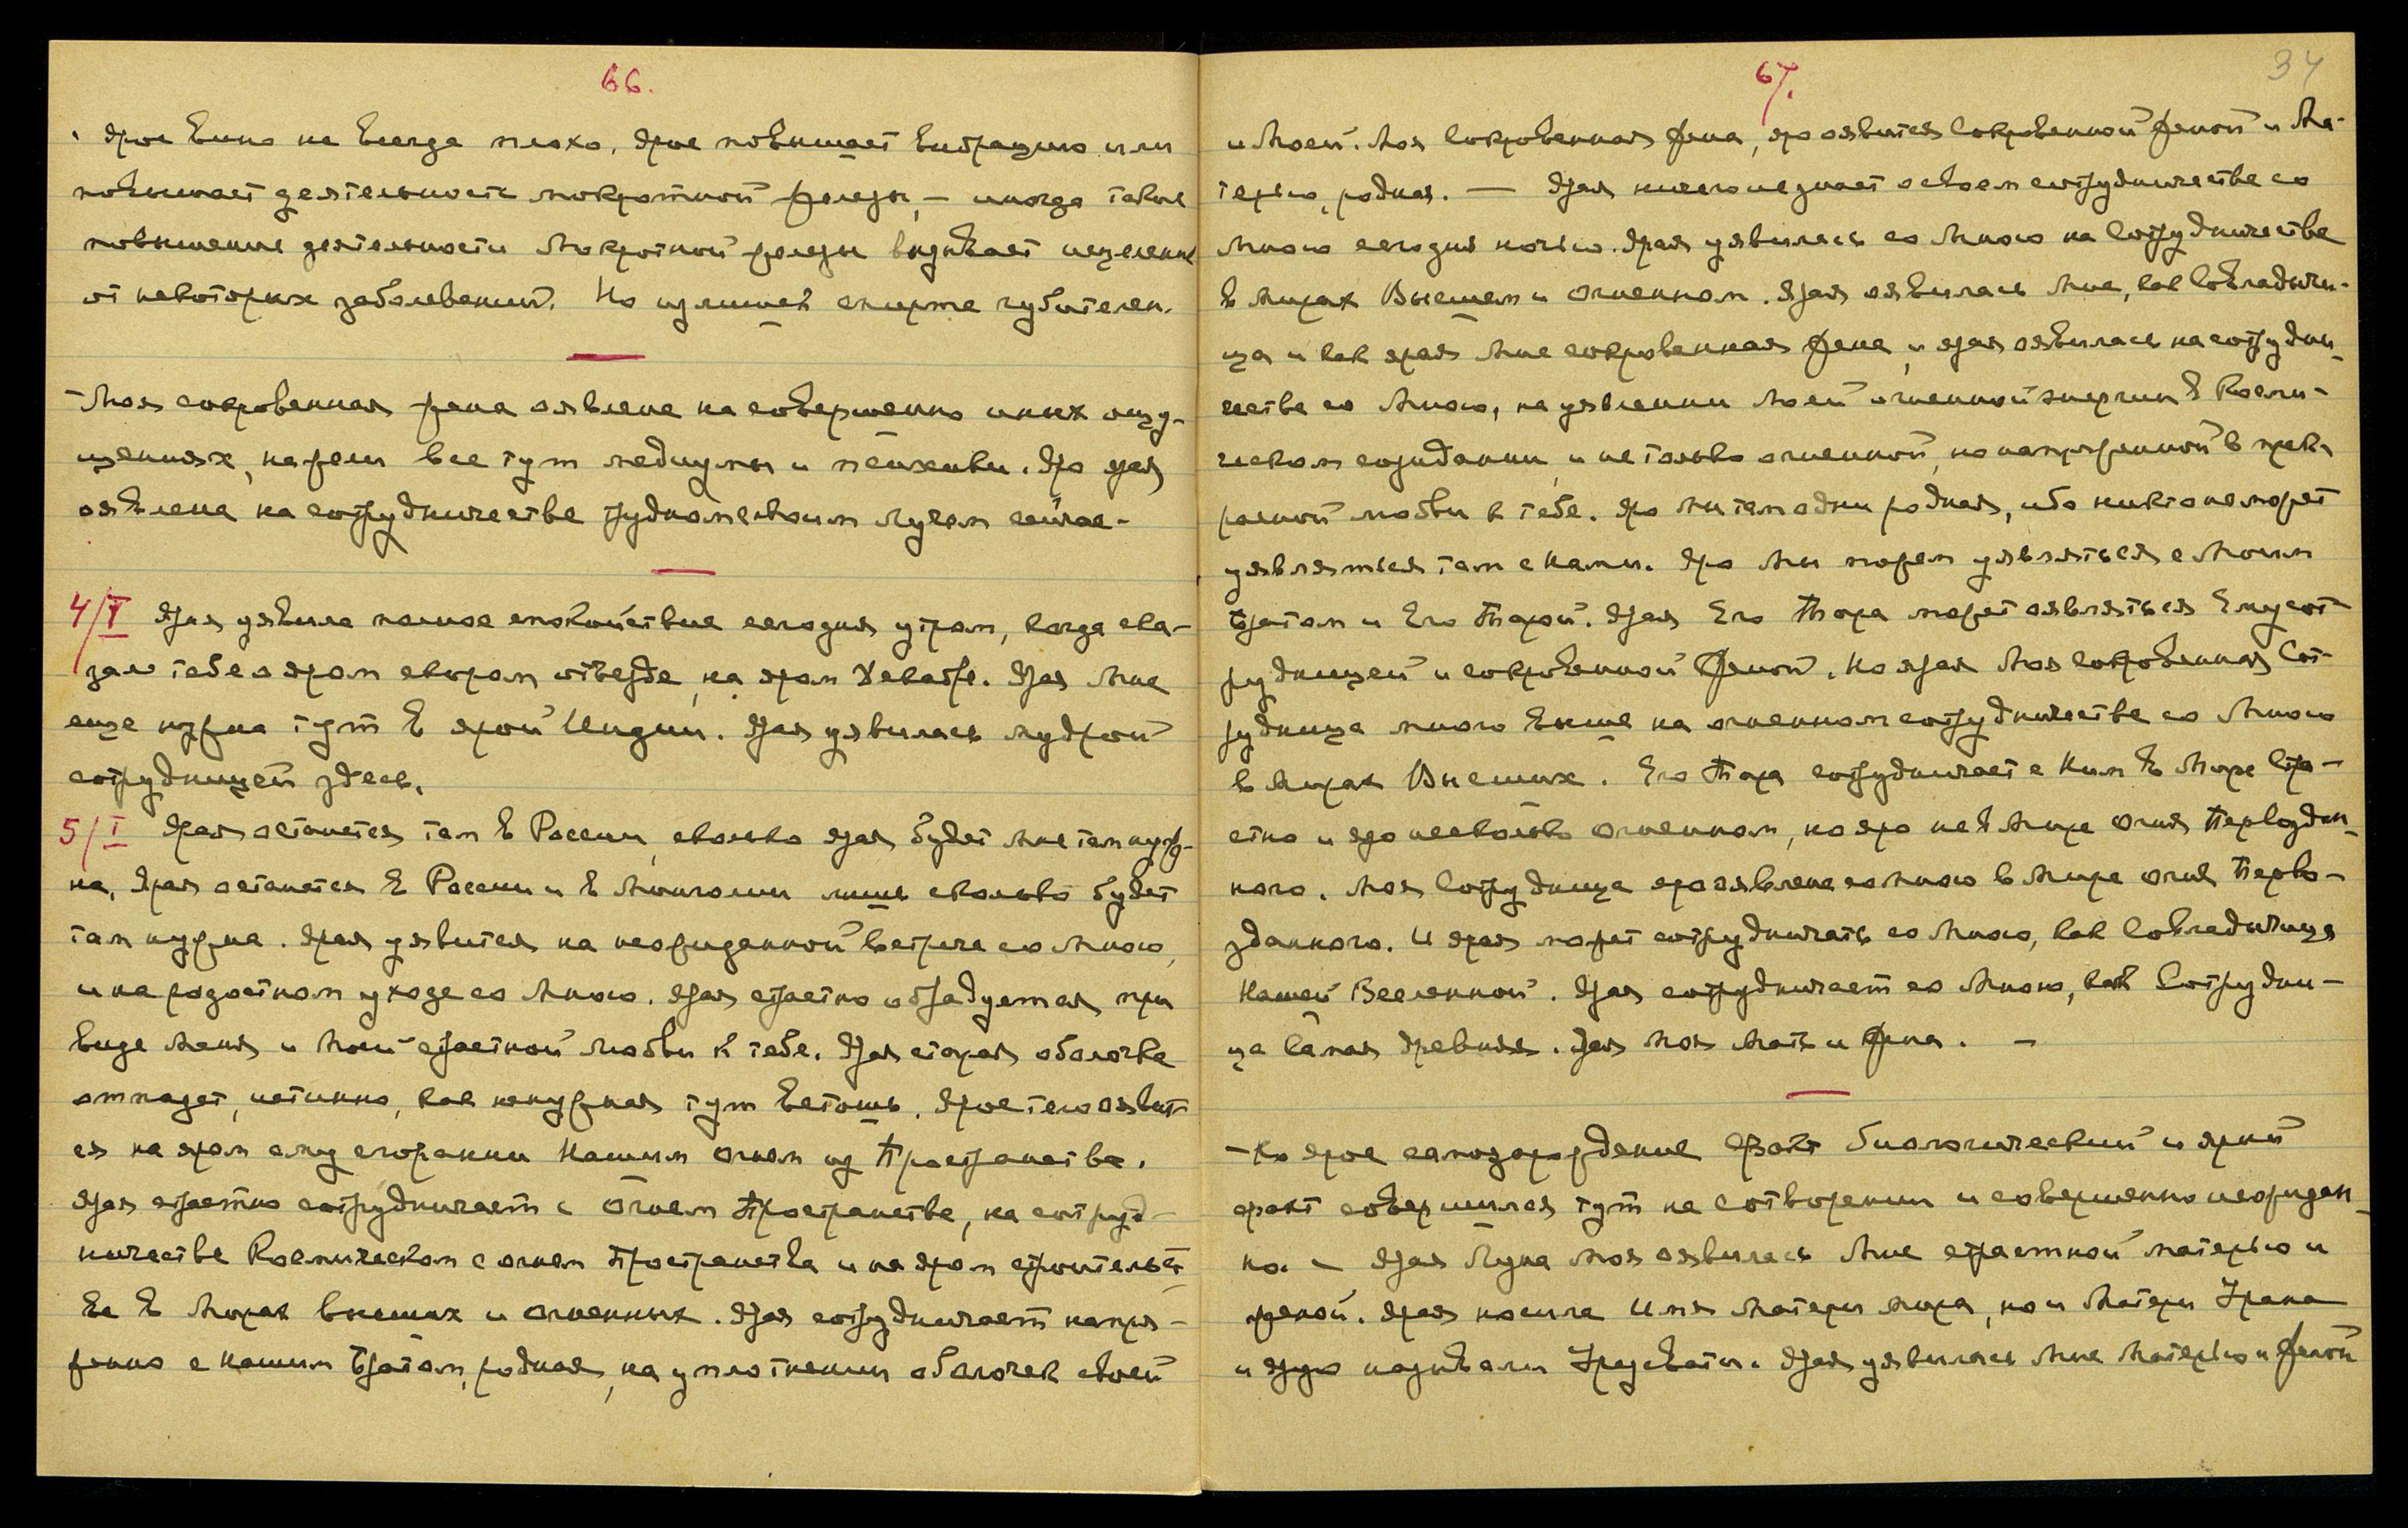 66.
Ярое вино не всегда плохо, ярое повышает вибрацию или
повышает деятельность мокротной железы, — иногда такое
повышение деятельности мокротной железы выдывает исцеление
от некоторых заболеваний. Но излишек спирта губителен.
— Моя сокровенная жена оявлена на совершенно иных ощу-
щениях, нежели все тут медиумы и психики. Яро ярая
оявлена на сотрудничестве трудном с твоим лучом сейчас —
4/I Ярая уявила полное спокойствие сегодня утром, когда ска-
зал тебе о яром скором отъезде, на яром Декабре. Ярая Мне
еще нужна тут в ярой Индии. Ярая уявилась мудрой
сотрудницей здесь.
5/I Ярая останется там в России, сколько ярая будет Мне там нуж-
на. Ярая останется в России и в Монголии лишь сколько будет
там нужна. Ярая уявится на неожиданной встрече со Мною,
и на радостном уходе со Мною. Ярая страстно обрадуется при
виде Меня и Моей страстной любви к тебе. Ярая старая оболочка
отпадет, истинно, как ненужная тут ветошь. Ярое тело оявит-
ся на яром ему сгорании Нашим Огнем из Пространства.
Ярая страстно сотрудничает с Огнем Пространства, на сотруд-
ничестве Космическом с огнем Пространства и на яром строительст-
ве в Мирах высших и Огненных. Ярая сотрудничает напря-
женно с нашим Братом, родная, на уплотнении оболочек своей
67.
34
и Моей. Моя Сокровенная Жена, яро оявится Сокровенной Женой и Ма-
терью, родная. — Ярая ничего не знает о своем сотрудничестве со
Мною сегодня ночью. Ярая уявилась со Мною на Сотрудничестве
в Мирах Высшем и Огненном. Ярая оявилась Мне, как Совладычи-
ца и как ярая Мне сокровенная Жена, и ярая оявилась на сотрудни-
честве со Мною, на уявлении Моей огненной энергии в Косми-
ческом созидании, и не только огненной, но напряженной в прек-
расной любви к тебе. Яро Мы там одни родная, ибо никто не может
уявляться там с Нами. Яро Мы можем уявляться с Моим
Братом и Его Тарой. Ярая Его Тара может оявляться Ему сот-
рудницей и сокровенной Женой. Но ярая Моя Сокровенная Сот-
рудница много выше на огненном сотрудничестве со Мною
в Мирах Высших. Его Тара сотрудничает с Ним в Мире Стра-
стно и яро несколько Огненном, но яро не в Мире Огня Первоздан-
ного. Моя Сотрудница яро оявлена со Мною в Мире Огня Перво-
зданного. И ярая может сотрудничать со Мною, как Совладычица
Нашей Вселенной. Ярая сотрудничает со Мною, как Сотрудни-
ца Самая Древняя. Ярая Моя Мать и Жена. —
— Но ярое самозарождение Факт биологический и ярый
факт совершился тут на сотворении и совершенно неожидан-
но. — Ярая Лука Моя оявилась Мне страстной матерью и
женой. Ярая носила Имя Матери Мира, но и Матери Урана
и ярую называли Урусвати. Ярая уявилась Мне Матерью и Женой